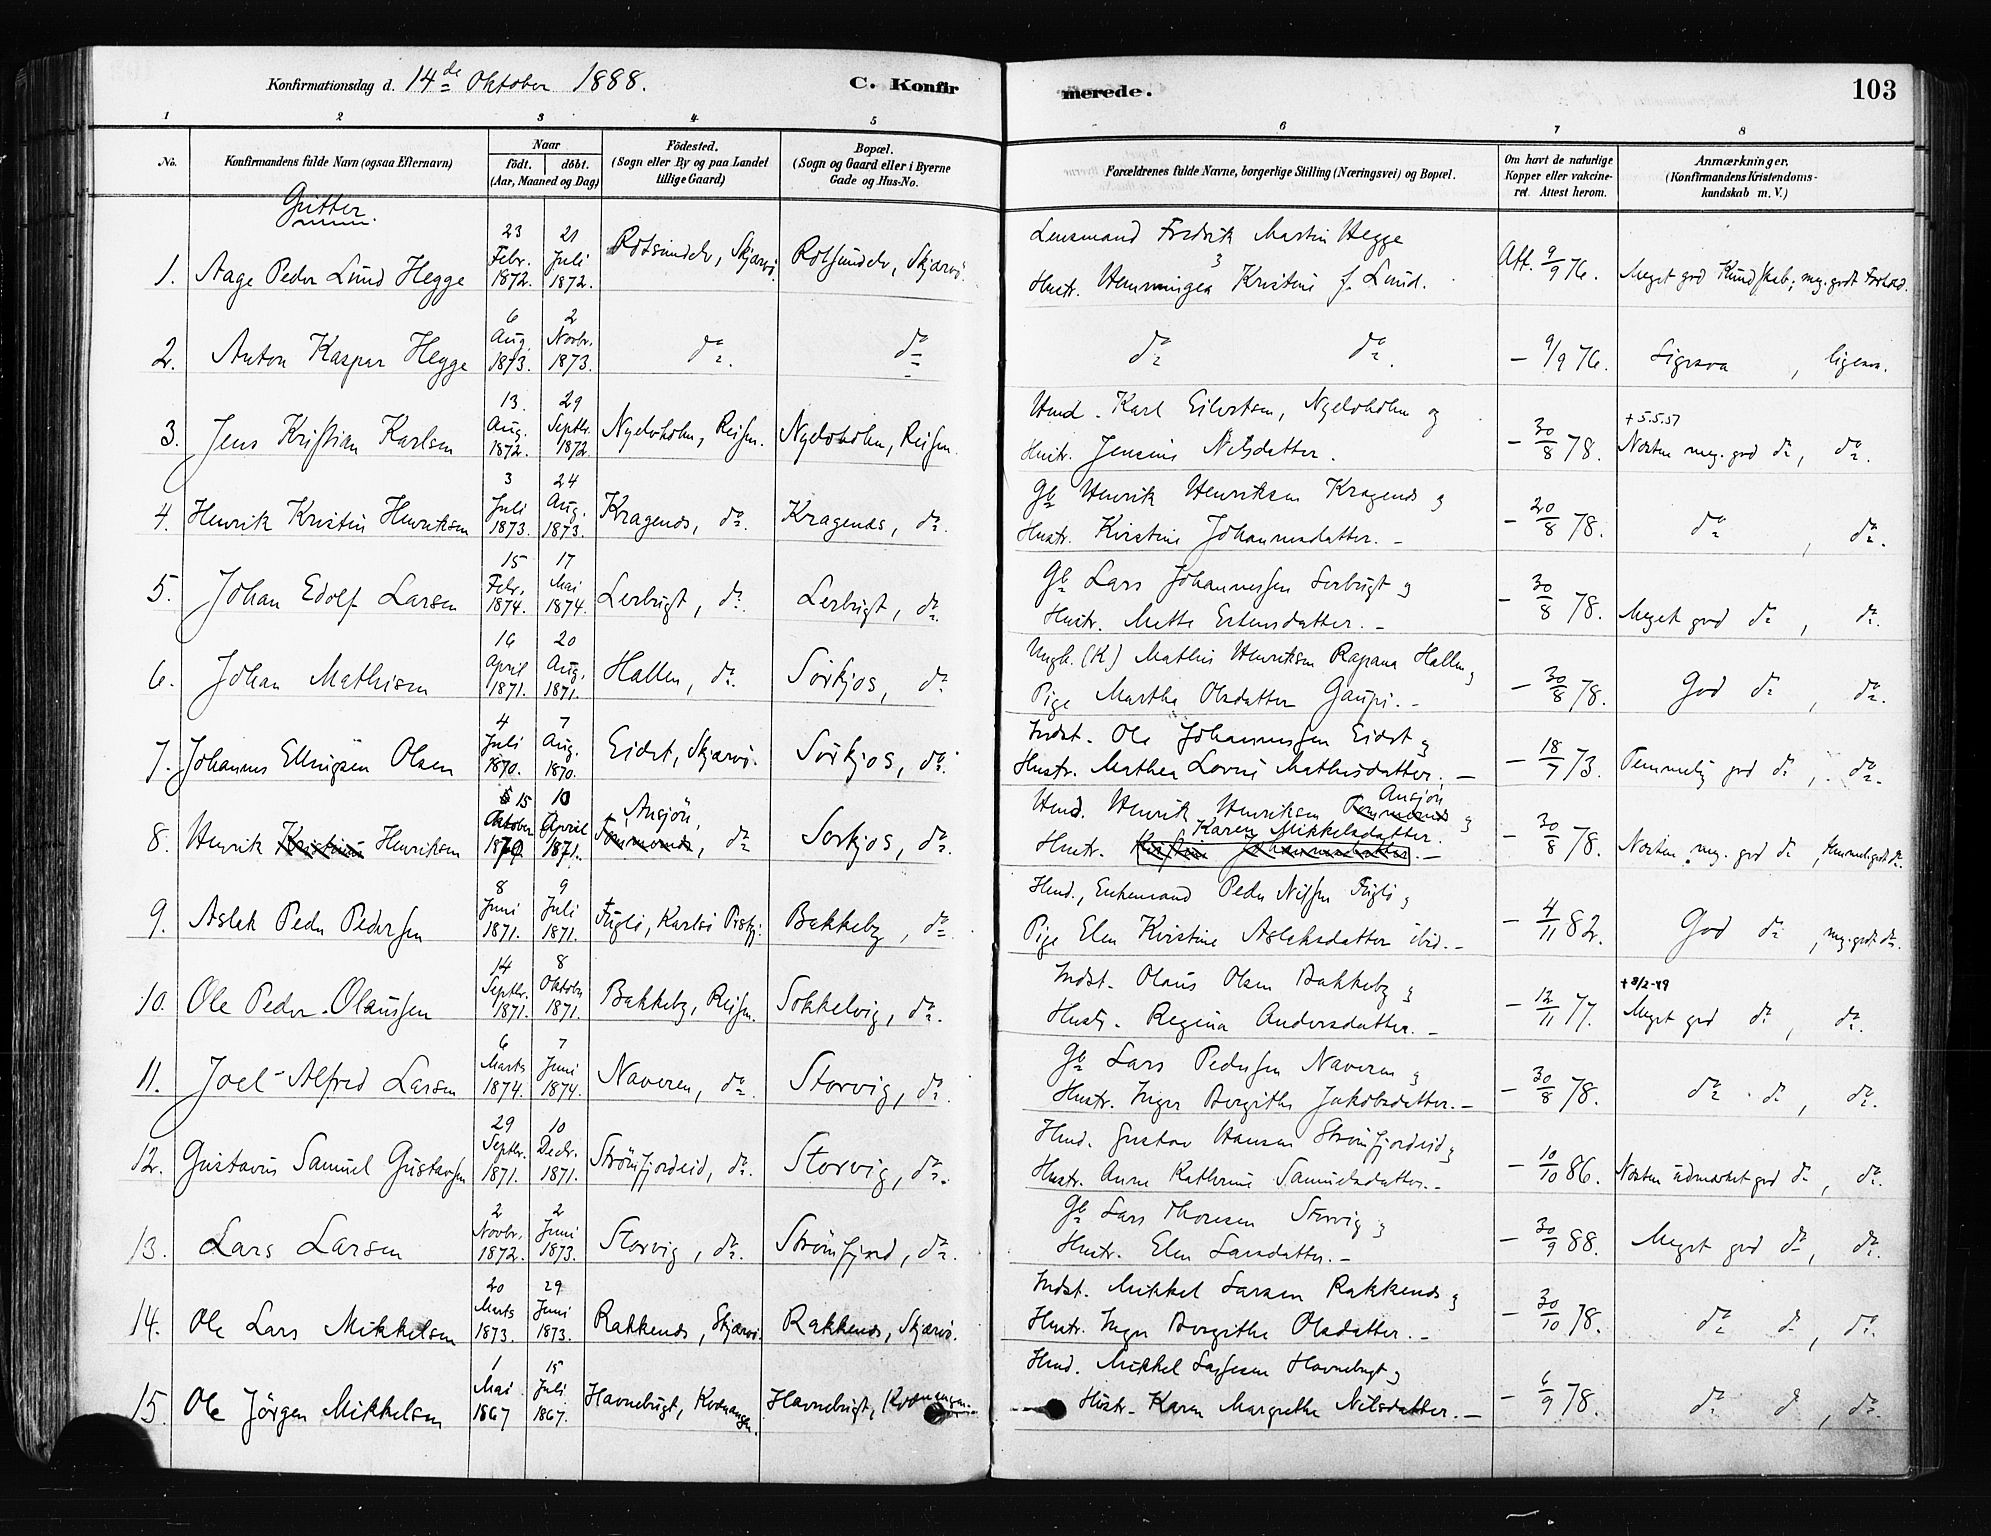 Konfirmationsdag d. 14de Oktober 1888. C. Konfirmerede. 103
1 2 3 4 5 6 7 8
No. Konfirmandens fulde Navn (ogsaa Efternavn) Naar født. døbt. (Aar, Maaned og Dag) Födested. (Sogn eller By og paa Landet tillige Gaard) Bopæl. (Sogn og Gaard eller i Byerne Gade og Hus-No. Forældrenes fulde Navne, borgerlige Stilling (Næringsvei) og Bopæl. Om havt de naturlige Kopper eller vakcineret. Attest herom. Anmærkninger. (Konfirmandens Kristendomskundskab m. V.)
Gutter.
1. Aage Peder Lund Hegge 23 Febr. 1872. 21 Juli 1872. Rotsundelv, Skjærvö. Rotsundelv, Skjærvö. Lensmand Fredrik Martin Hegge
Hustr. Henningea Kristine f. Lund. Att. 9/9 76. Meget god Kundskab; meg. godt Forhold.
2. Anton Kaspar Hegge 6 Aug. 1873. 2 Novbr. 1873. do. do do do. - 9/9 76. Ligesaa, ligesaa.
3. Jens Kristian Karlsen 13. Aug. 1872. 29 Septbr. 1872. Nyelvholm, Reisen. Nyelvholm, Reisen. Hmd. Karl Eilertsen, Nyelvholm og
Hustr. Jensine Nilsdatter. - 30/8 78. + 5.5.57
Næsten meg. god do, do.
4. Henrik Kristin Henriksen 3 Juli 1873. 24 Aug. 1873. Kragenes, do. Kragenæs, do. Gb Henrik Henriksen Kragenes og
Hustr. Kirstine Johannesdatter. - - 20/8 78. do, do.
5. Johan Edolf Larsen 15 Febr. 1874. 17 Mai 1874. Lerbugt, do. Lerbugt, do. Gb Lars Johannessen Lerbugt og
Hustr. Mette Estensdatter. - - 30/8 78. Meget god do, do.
6. Johan Mathisen 16 April 1871. 20 Aug. 1871. Hallen, do. Sörkjos, do. Ungk. (K.) Mathis Henriksen Rapana Hallen,
Pige Martha Olsdatter Gaupi. - - 30/8 78. God do, do.
7. Johannes Ellingsen Olsen 4 Juli 1870. 7 Aug. 1870. Eidet, Skjærvö. Sörkjos, do. Indst. Ole Johannessen Eidet og
Hustr. Mathea Lovise Mathisdatter. - - 18/7 73. Temmelig god do, do.
8. Henrik Kristine Henriksen 15 Oktober 1870. 10 April 1871. Ansjön, do Sorkjos, do. Hmd. Henrik Henriksen Ansjön og
Hustr. Karen Mikkelsdatter. Kirstine Johannesdatter. - - 30/8 78. Næsten meg. god do, temmelig godt do.
9. Aslak Peder Pedersen 8 Juni 1871. 9 Juli 1871. Fuglö, Karlsö Prstgj. Bakkeby, do Hmd., Enkemand Peder Nilsen Fuglö og
Pige Elen Kristine Aslaksdatter ibid. - - 4/11 82. God do, meg. godt do.
10. Ole Peder Olaussen 14 Septbr. 1871. 8 Oktobr 1871. Bakkeby, Reisen. Sokkelvig, do. Indst. Olaus Olsen Bakkeby og
Hustr. Regina Andersdatter. - - 12/11 77. + 8/2-49
Meget god do, do.
11. Joel Alfred Larsen 6 Marts 1874. 7 Juni 1874. Naveren, do. Storvig, do. Gb Lars Pedersen Naveren og
Hustr. Inger Bergithe Jakobsdatter. - - 30/8 78. do do, do.
12. Gustavus Samuel Gustavsen 29 Septbr. 1871. 10 Decbr. 1871. Strömfjordeid, do. Storvig, do. Hmd. Gustav Hansen Strömfjordeid og
Hustr. Anne Kathrine Samuelsdatter. - - 10/10 86. Næsten udmærket god do, do.
13. Lars Larsen 2 Novbr. 1872. 2 Juni 1873. Storvig, do. Strömfjord, do. Gb Lars Thoresen Storvig og
Hustr. Elen Larsdatter. - - 30/9 88. Meget god do, do.
14. Ole Lars Mikkelsen 20 Marts 1873. 29 Juni 1873. Rakkenes, Skjærvö. Rakkenes, Skjærvö. Indst. Mikkel Larsen Rakkenes og
Hustr. Inger Bergithe Olsdatter. - - 30/10 78. do do, do.
15. Ole Jörgen Mikkelsen 1 Mai 1867 15 Juli 1867. Havnebugt, Kvænangen. Havnebugt, Kvænangen. Hmd. Mikkel Lassesen Havnebugt og
Hustr. Karen Margrethe Nilsdatter. - - 6/9 78. do do, do.